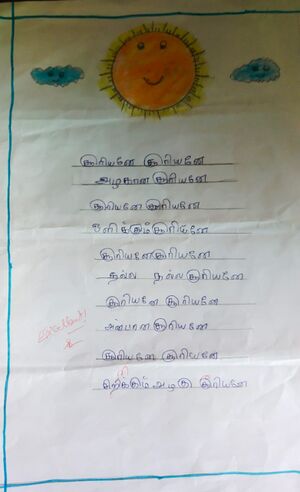 சூரியனே சூரியனே
அழகான சூரியனே
சூரியனே சூரியனே
ஒளிக்கும் சூரியனே
சூரியனே சூரியனே
நல்ல நல்ல சூரியனே
சூரியனே சூரியனே
அன்பான சூரியனே
சூரியனே சூரியனே
சிறிக்கும் அழகு சூரியனே